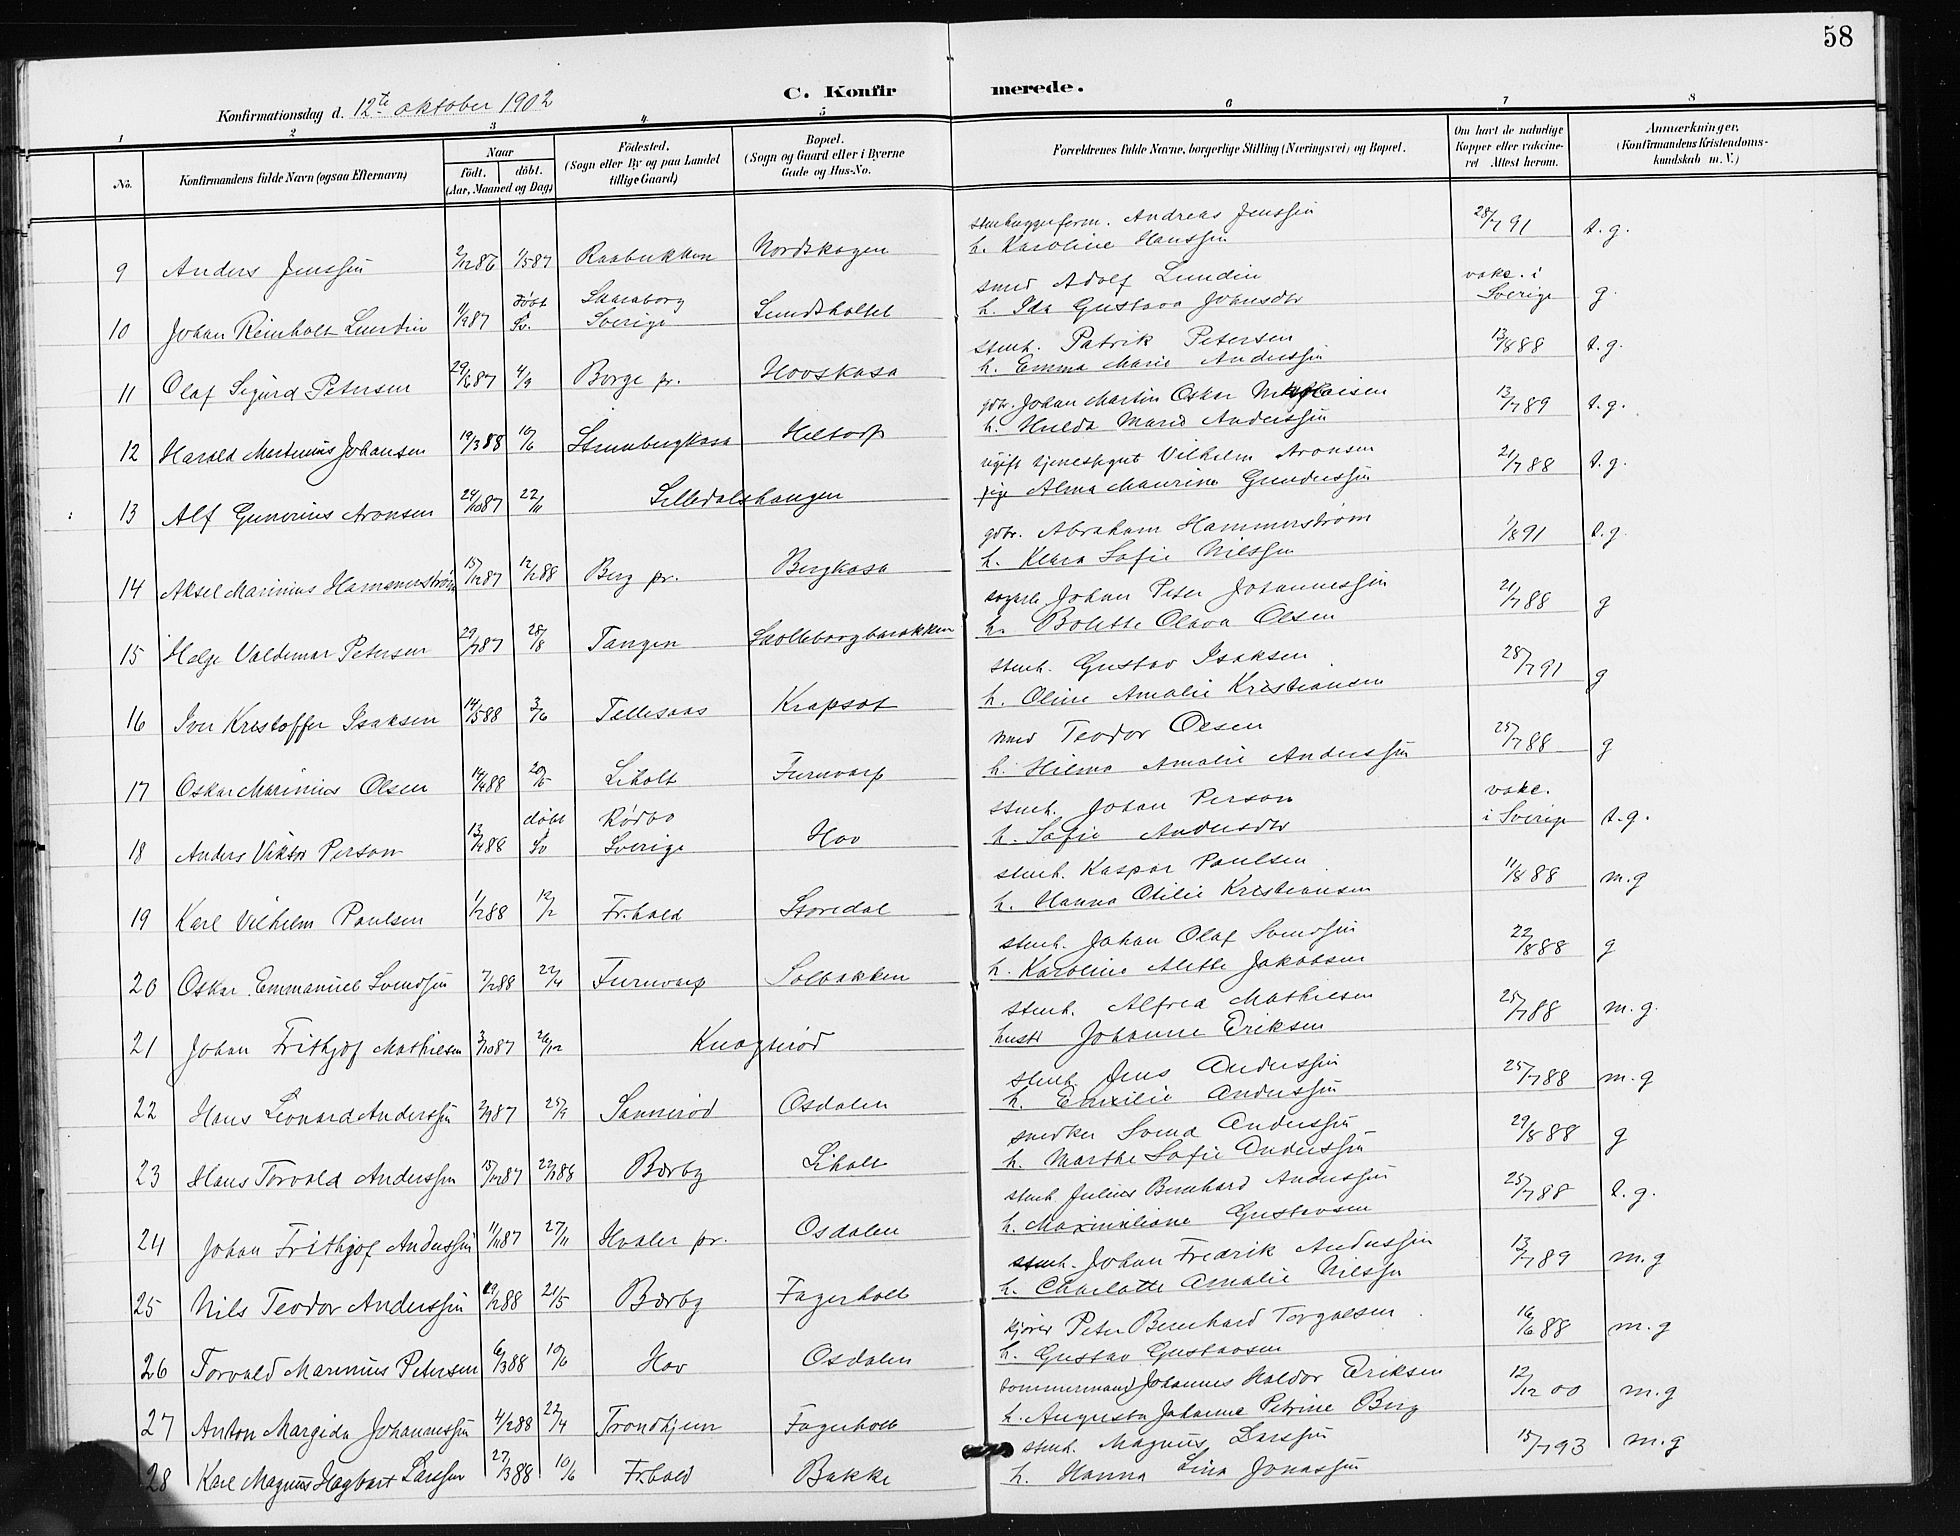 58
C. Konfirmerede.
Konfirmationsdag d. 12te oktober 1902
1 2 3 4 5 6 7 8
No. | Konfirmandens fulde Navn (ogsaa Efternavn) | Naar Født. døbt. (Aar, Maaned og Dag) | Fødested. (Sogn eller By og paa Landet tillige Gaard) | Bopæl. (Sogn og Gaard eller i Byerne Gade og Hus-No.) | Forældrenes fulde Navne, borgerlige Stilling (Næringsvei) og Bopæl. | Om havt de naturlige Kopper eller vaccineret Attest herom. | Anmærkninger. (Konfirmandens Kristendomskundskab m. V.)
9 Anders Jenssen 2/12 86 1/5 87 Raabukken Nordskogen Andreas Jenssen 28/7 91 t.g.
h. Karoline Hanssen
10 Johan Reinholt Lundin 11/9 87 Født Sv. Skaraborg Sverige Sundsholtet smed Adolf Lundin vakc. i Sverige g.
h. Ida Gustava Johnsdtr
11 Olaf Sigurd Petersen 29/6 87 4/9 Borge pr. Hovskasa stenh. Patrik Petersen 13/8 88 t.g.
h. Emma Marie Anderssen
12 Harald Martinius Johansen 19/3 88 10/6 Heltorp gdbr. Johan Martin Oskar 13/7 89 t.g.
h. Hulda Marie Anderssen
13 Alf Gunerius Aronsen 24/10 87 22/11 Lilledalshaugen ugift tjenestegut Vilhelm Aronsen 21/7 88 t.g.
pige Alma Maurine Gundersen
14 Aksel Marinius Hammerstrøm 15/12 87 12/2 88 Berg pr. Bergkasa gdbr. Abraham Hammerstrøm 1/8 91 t.g.
h. Klara Sofie Nilssen
15 Helge Valdemar Petersen 29/7 87 28/8 Tangen Skolleborgbarakken Johan Peter Johannessen 21/7 88 g
h. Bolette Olava Olsen
16 Iver Kristoffer Isaksen 14/5 88 3/6 Tellesaas Krapsot stenh. Gustav Isaksen 28/7 91 g
h. Oline Amalie Kristiansen
17 Oskar Marinius Olsen 14/4 88 20/5 Liholt Furuvarp smed Teodor Olsen 25/7 88 g
h. Hilma Amalie Anderssen
18 Anders Viktor Person 13/4 88 døbt i Sv Rødbo Sverige Hov stenh. Johan Person vakc. i Sverige t.g.
h. Sofie Andersdtr
19 Karl Vilhelm Paulsen 1/1 88 12/2 Fr.hald Storedal stenh. Kaspar Paulsen 11/8 88 m.g
h. Hanna Otilie Kristiansen
20 Oskar Emmanuel Svendsen 7/2 88 22/4 Furuvarp Solbakken stenh. Johan Olaf Svendsen 22/8 88 g
h. Karoline Alette Jakobsen
21 Johan Frithjof Mathisen 3/10 87 26/12 Knagserød stenh. Alfred Mathiesen 25/7 88 m.g.
hustr Johanne Eriksen
22 Hans Leonard Anderssen 2/9 87 25/9 Sannerød Osdalen stenh. Jens Anderssen 25/7 88 m.g
h. Emilie Anderssen
23 Hans Torvald Anderssen 15/12 87 22/1 88 Børby Liholt snedker Svend Anderssen 29/8 88 g
h. Marthe Sofie Anderssen
24 Johan Frithjof Anderssen 11/11 87 27/11 Hvaler pr. Osdalen stenh. Julius Bernhard Anderssen 25/7 88 t.g.
h. Maximiliane Gustavsen
25 Nils Teodor Anderssen 19/2 88 21/5 Børby Fagerholt stenh. Johan Fredrik Anderssen 13/7 89 m.g
h. Charlotte Amalie Nilssen
26 Torvald Marinius Petersen 6/3 88 10/6 Hov Osdalen kjører Peter Bernhard Torgalsen 16/6 88 m.g
h. Gustav Gustavsen
27 Anton Margido Johannessen 4/2 88 22/4 Trondhjem Fagerholt tømmermand Johannes Haldor Eriksen 12/12 00 m.g
h. Augusta Johanne Petrine Berg
28 Karl Magnus Hagbart Larssen 27/3 88 10/6 Fr.hald Bakke stenh. Magnus Larssen 15/7 93 m.g
h. Hanna Lina Jonassen